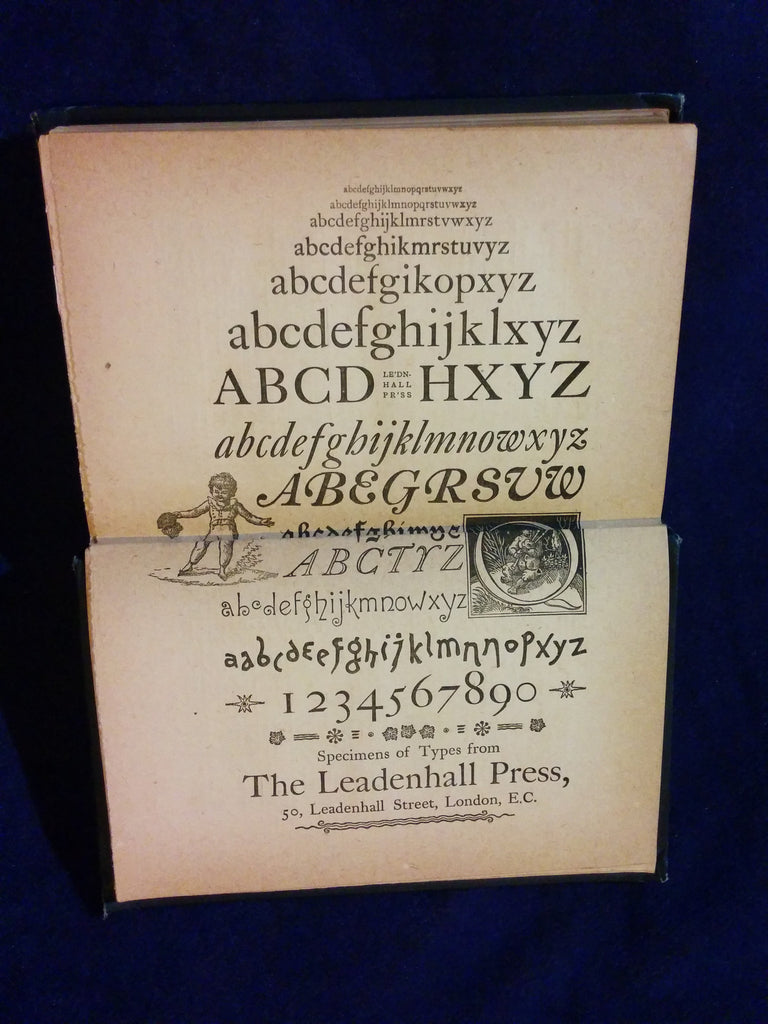 abcdefghijklmnopqrstuvwxyz
abcdefghijklmnopqrstuvwxyz
abcdefghijklmrstvwxyz
abcdefghikmrstuvyz
abcdefgikopxyz
abcdefghijklxyz
ABCD LE'DN-HALL PR'SS HXYZ
abcdefghijklmnowxyz
ABEGRSUW
ABCTYZ
abcdefghijkmnowxyz
aabcdeefghijklmnnopxyz
1234567890
Specimens of Types from
The Leadenhall Press,
50, Leadenhall Street, London, E.C.